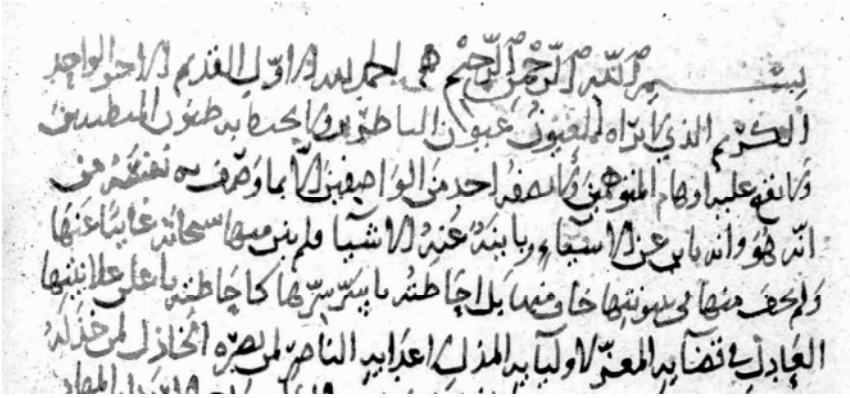 بسم الله الرحمن الرحيم الحمد لله الاول القديم الاحد الواحد
الكريم الذي لا تراه العيون عيون الناظرين ولا يحيط به ظنون
ولا تقع عليه اوهام المتوهمين ولا يصفه احد من الواصفين الا بما وصف به نفسه من
انه هو وانه باين عن الاشياء وباينه عنه الاشيا فلم يبن منها سبحانه غايبا عنها
ولم يخف منها خاف منها بل احاطته باسر سرها كاحاطته باعلى علانيتها
العادل في قضايه المعز لاوليايه المذل لاعدايه الناصر لمن نصره الخاذل لمن خذله